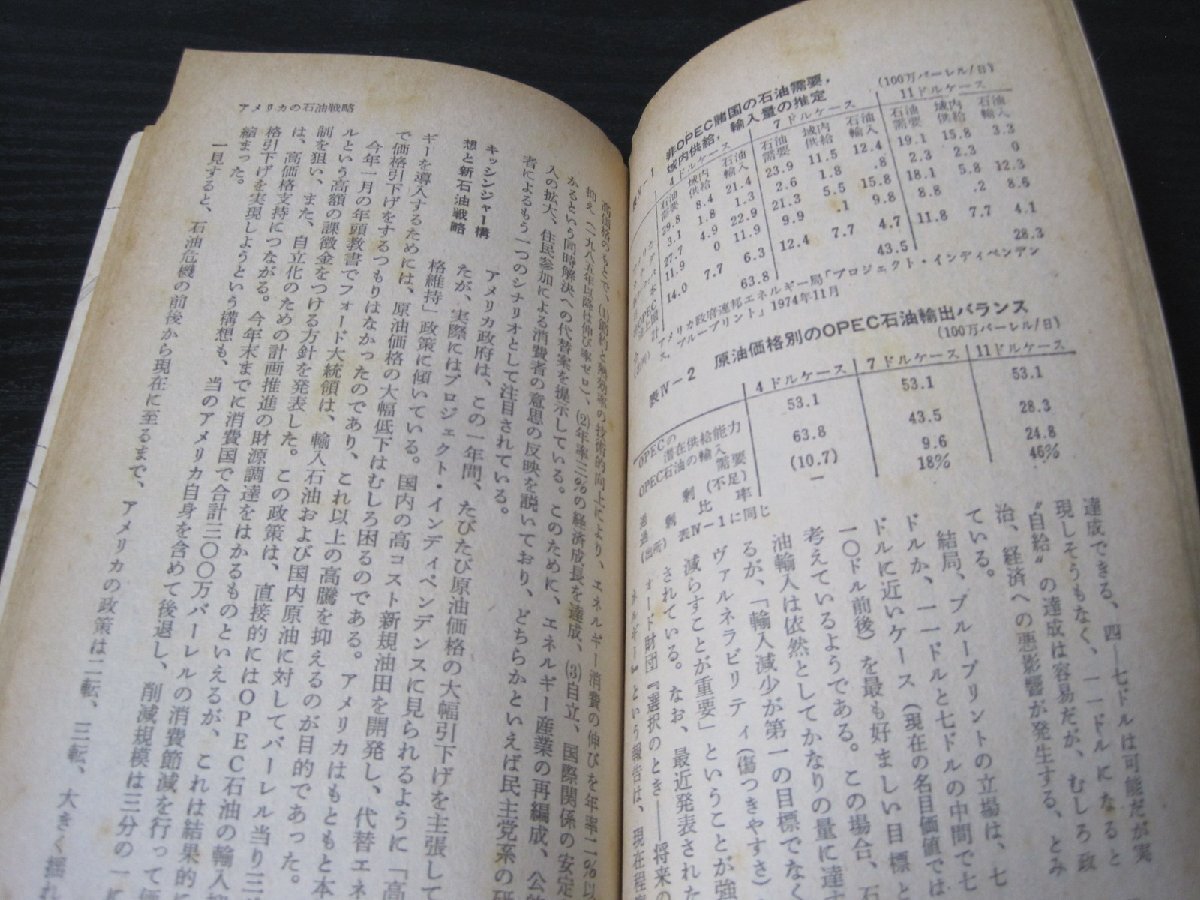 表Ⅳ-1 非OPEC諸国の石油需要,
域内供給, 輸入量の推定
(100万バーレル/日)
4ドルケース 7ドルケース 11ドルケース
石油需要 域内供給 石油輸入 石油需要 域内供給 石油輸入 石油需要 域内供給 石油輸入
29.8 8.4 21.4 23.9 11.5 12.4 19.1 15.8 3.3
3.1 1.8 1.3 2.6 1.8 .8 2.3 2.3 0
27.7 4.9 22.9 21.3 5.5 15.8 18.1 5.8 12.3
11.9 0 11.9 9.9 .1 9.8 8.8 .2 8.6
14.0 7.7 6.3 12.4 7.7 4.7 11.8 7.7 4.1
63.8 43.5 28.3
アメリカ政府連邦エネルギー局『プロジェクト・インディペンデン
ス, ブループリント』1974年11月
表Ⅳ-2 原油価格別のOPEC石油輸出バランス
(100万バーレル/日)
4ドルケース 7ドルケース 11ドルケース
OPECの潜在供給能力 53.1 53.1 53.1
OPEC石油の輸入需要 63.8 43.5 28.3
過剰(不足) (10.7) 9.6 24.8
過剰比率 — 18% 46%
(出所) 表Ⅳ-1に同じ
達成できる、四—七ドルは可能だが実
現しそうもなく、一一ドルになると
“自給”の達成は容易だが、むしろ政
治、経済への悪影響が発生する、とみ
ている。
結局、ブループリントの立場は、七
ドルか、一一ドルと七ドルの中間で七
ドルに近いケース(現在の名目価値では
一〇ドル前後)を最も好ましい目標と
考えているようである。この場合、石
油輸入は依然としてかなりの量に達す
るが、「輸入減少が第一の目標でなく
ヴァルネラビリティ(傷つきやすさ)
減らすことが重要」ということが強
されている。なお、最近発表された
ォード財団『選択のとき——将来の
ネルギー』という報告は、現在程
アメリカの石油戦略
高価格のもとで、(1)節約と熱効率の技術的向上により、エネルギー消費の伸びを年率二%以
抑え(一九八五年以降は伸び率ゼロ)、(2)年率三%の経済成長を達成、(3)自立、国際関係の安定
かるという同時解決への代替案を提示している。このために、エネルギー産業の再編成、公的
入の拡大、住民参加による消費者の意思の反映を説いており、どちらかといえば民主党系の研
者によるもう一つのシナリオとして注目されている。
キッシンジャー構
想と新石油戦略
アメリカ政府は、この一年間、たびたび原油価格の大幅引下げを主張して
たが、実際にはプロジェクト・インディペンデンスに見られるように「高
格維持」政策に傾いている。国内の高コスト新規油田を開発し、代替エネ
ギーを導入するためには、原油価格の大幅低下はむしろ困るのである。アメリカはもともと本
で価格引下げをするつもりはなかったのであり、これ以上の高騰を抑えるのが目的であった。
今年一月の年頭教書でフォード大統領は、輸入石油および国内原油に対してバーレル当り三
ルという高額の課徴金をつける方針を発表した。この政策は、直接的にはOPEC石油の輸入
制を狙い、また、自立化のための計画推進の財源調達をはかるものといえるが、これは結果的
は、高価格支持につながる。今年末までに消費国で合計三〇〇万バーレルの消費節減を行って価
格引下げを実現しようという構想も、当のアメリカ自身を含めて後退し、削減規模は三分の一
縮まった。
一見すると、石油危機の前後から現在に至るまで、アメリカの政策は二転、三転、大きく揺れ